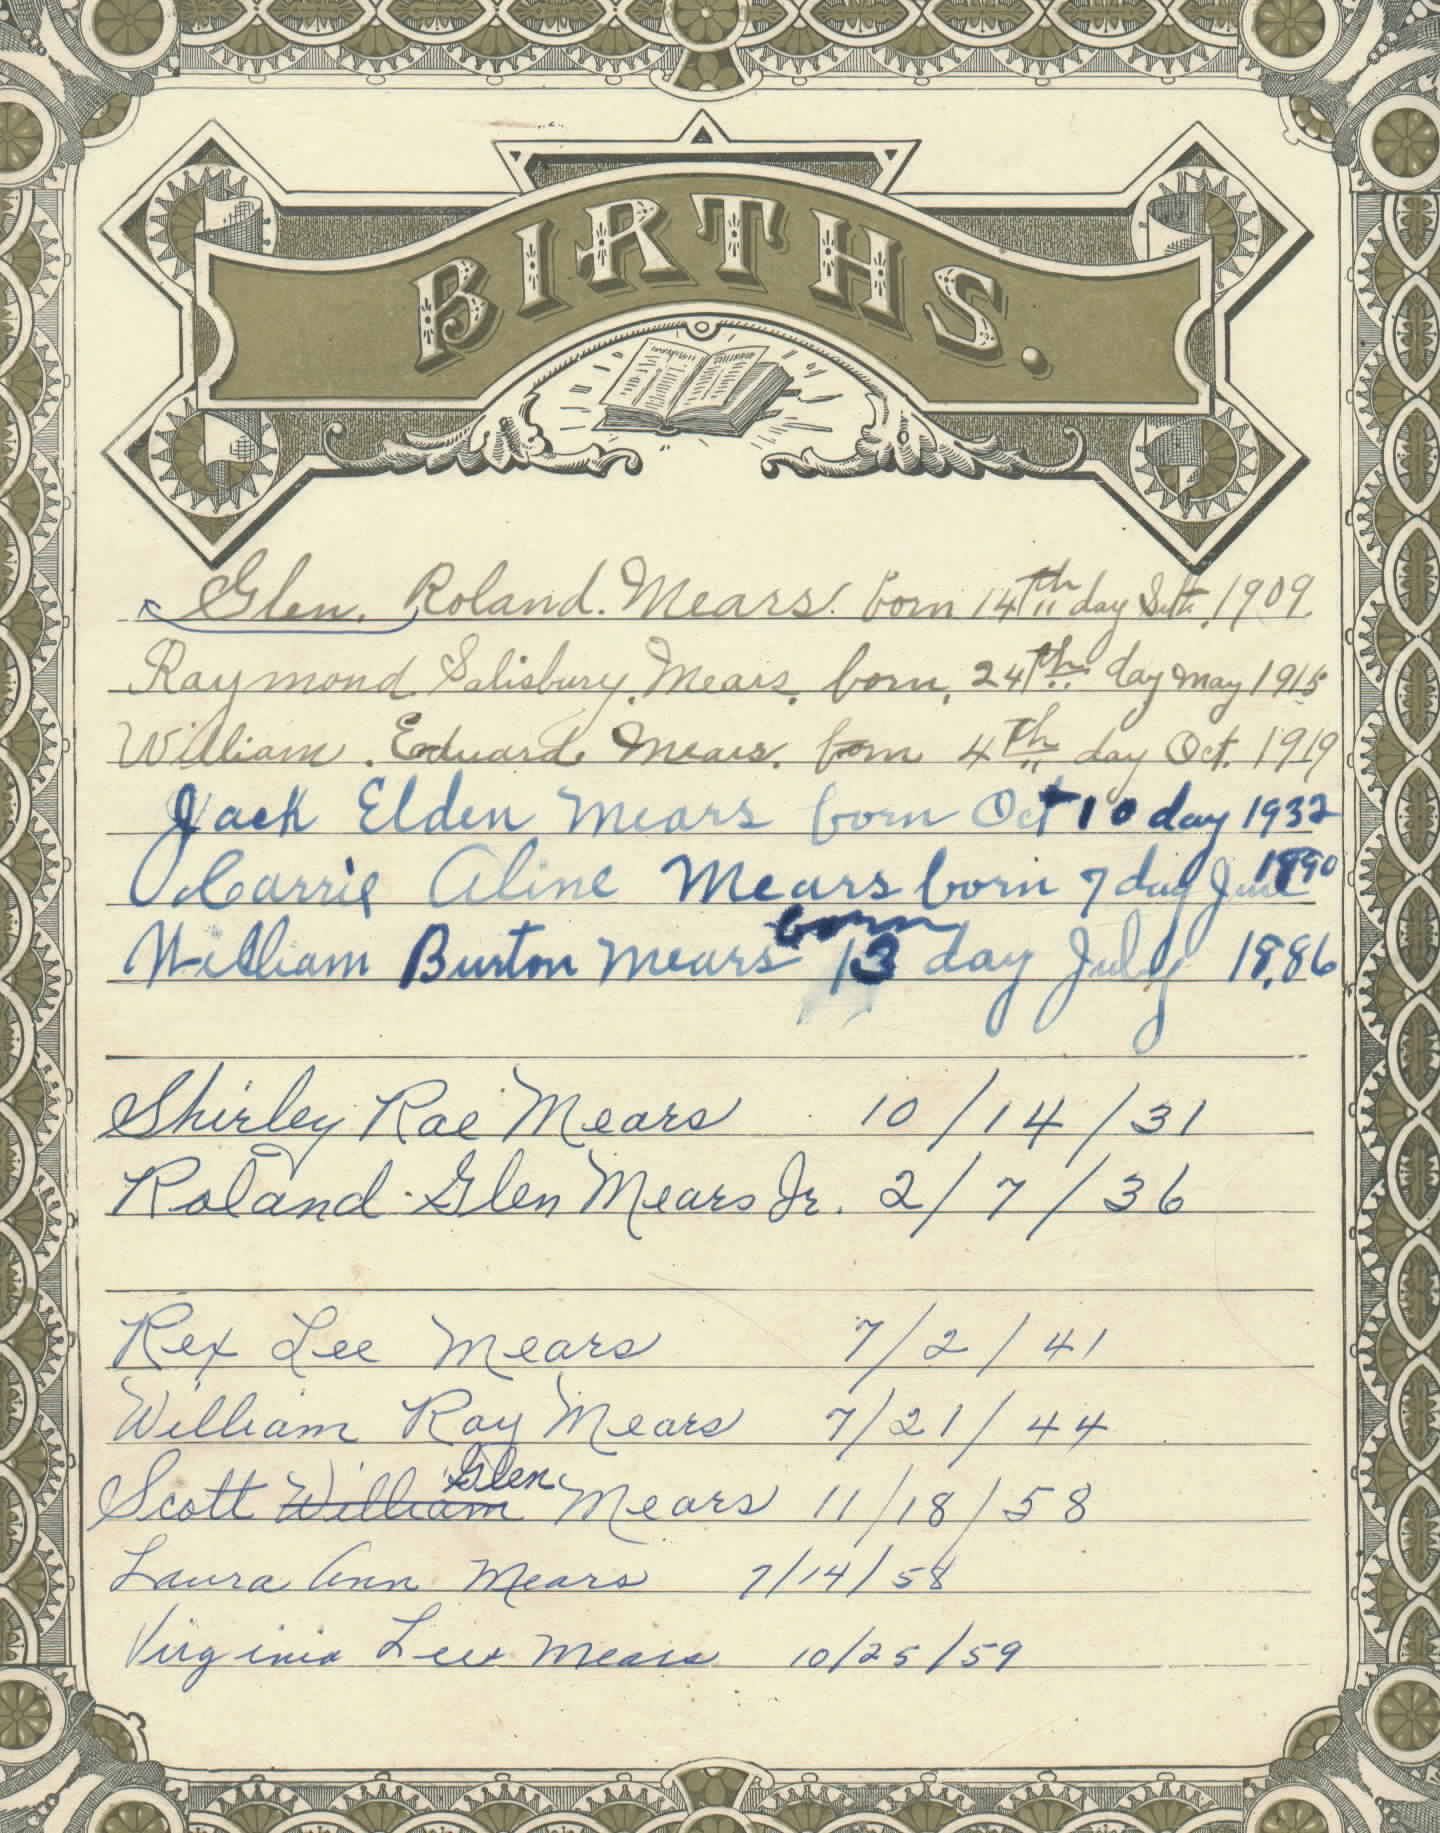 BIRTHS.
Glen. Roland. Mears. born 14th day Sept. 1909
Raymond Salisbury. Mears. born, 24th day May 1915
William. Edward Mears. born 4th day Oct. 1919
Jack Elden Mears born Oct 10 day 1932
Carrie Aline Mears born 7 day June 1890
born
William Burton Mears 13 day July 1886
Shirley Rae Mears 10/14/31
Roland Glen Mears Jr. 2/7/36
Rex Lee Mears 7/2/41
William Ray Mears 7/21/44
Glen
Scott William Mears 11/18/58
Laura Ann Mears 7/14/58
Virginia Mears 10/25/59